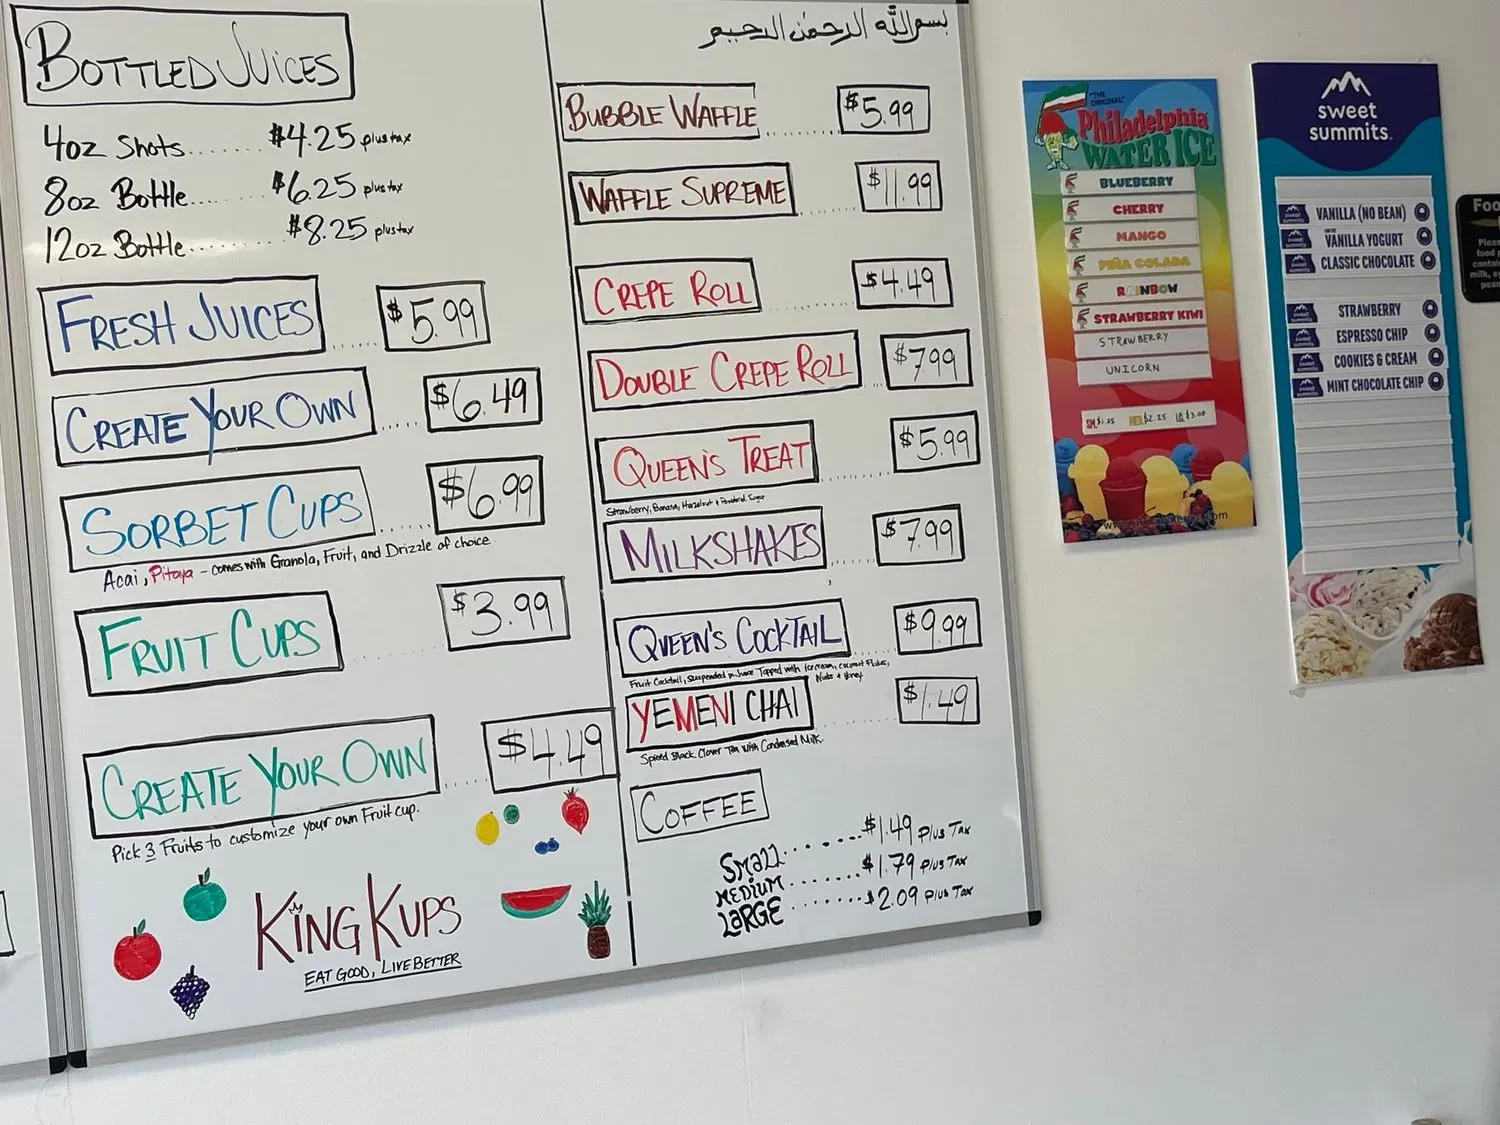 BOTTLED JUICES
4oz Shots........ $4.25 plus tax
8oz Bottle..... $6.25 plus tax
12oz Bottle....... $8.25 plus tax
FRESH JUICES ...... $5.99
CREATE YOUR OWN ..... $6.49
SORBET CUPS ..... $6.99
Acai, Pitaya - comes with Granola, Fruit, and Drizzle of choice
FRUIT CUPS ....... $3.99
CREATE YOUR OWN ..... $4.49
Pick 3 Fruits to customize your own Fruit cup.
KING KUPS
EAT GOOD, LIVE BETTER
بسم الله الرحمن الرحيم
BUBBLE WAFFLE ....... $5.99
WAFFLE SUPREME ...... $11.99
CREPE ROLL ....... $4.49
DOUBLE CREPE ROLL ... $7.99
QUEEN'S TREAT ....... $5.99
Strawberry, Banana, Hazelnut + Powdered Sugar
MILKSHAKES ...... $7.99
QUEEN'S COCKTAIL ...... $9.99
Fruit Cocktail, Suspended in Juice Topped with Ice cream, coconut Flakes,
Nuts + Honey
YEMENI CHAI ........ $1.49
Spiced Black Clover Tea with Condensed Milk
COFFEE
SMALL ........ $1.49 Plus Tax
MEDIUM ........ $1.79 Plus Tax
LARGE ........ $2.09 Plus Tax
"THE ORIGINAL"
Philadelphia
WATER ICE
BLUEBERRY
CHERRY
MANGO
PIÑA COLADA
RAINBOW
STRAWBERRY KIWI
STRAWBERRY
UNICORN
MED $2.25 LG $3.00
sweet
summits
VANILLA (NO BEAN)
VANILLA YOGURT
CLASSIC CHOCOLATE
STRAWBERRY
ESPRESSO CHIP
COOKIES & CREAM
MINT CHOCOLATE CHIP